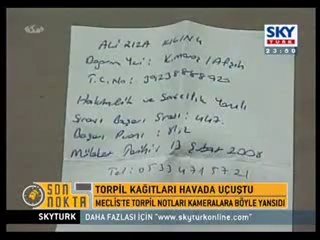 SKY
TURK
23:50
ALİ RIZA KILINÇ
Doğum Yeri: K.maraş / Afşin
T.C. No: 39238888920
Hakimlik ve Savcılık Yazılı
Sınavı Başarı Sırası: 447.
Başarı Puanı:
Mülakat Tarihi: 13 Şubat 2008
Tel: 0533 4715721
SON
NOKTA
TORPİL KAĞITLARI HAVADA UÇUŞTU
MECLİS'TE TORPİL NOTLARI KAMERALARA BÖYLE YANSIDI
SKYTURK
DAHA FAZLASI İÇİN "www.skyturkonline.com"